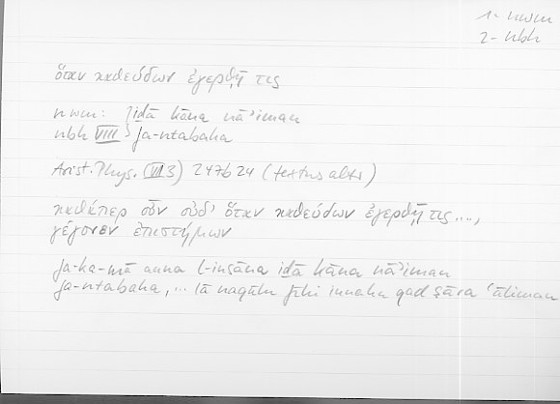 1- nwm
2- nbh
ὅταν καθεύδων ἐγερθῇ τις
nwm: } iḏā kāna nāʾiman
nbh VIII } fa-ntabaha
Arist. Phys. (VII 3) 247b24 (textus alter)
καθάπερ οὖν οὐδ' ὅταν καθεύδων ἐγερθῇ τις....,
γέγονεν ἐπιστήμων
fa-ka-mā anna l-insāna iḏā kāna nāʾiman
fa-ntabaha, ... lā naqūlu fīhi innahu qad ṣāra ʿāliman